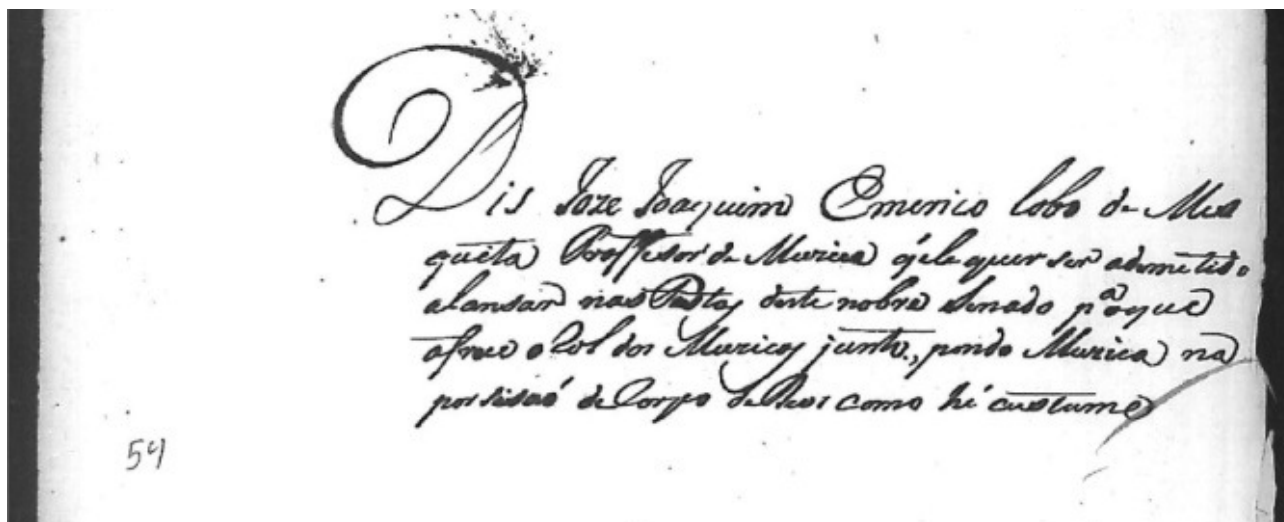 Dis Joze Joaquim Emerico lobo de Mes
quita Proffesor de Muzica q̃ ele quer serademetido
alansar nas Festas deste nobre Senado pª oque
ofrece o Rol dos Muzicos junto, pondo Muzica na
porsisaó de Corpo de Deos como hé custume
54